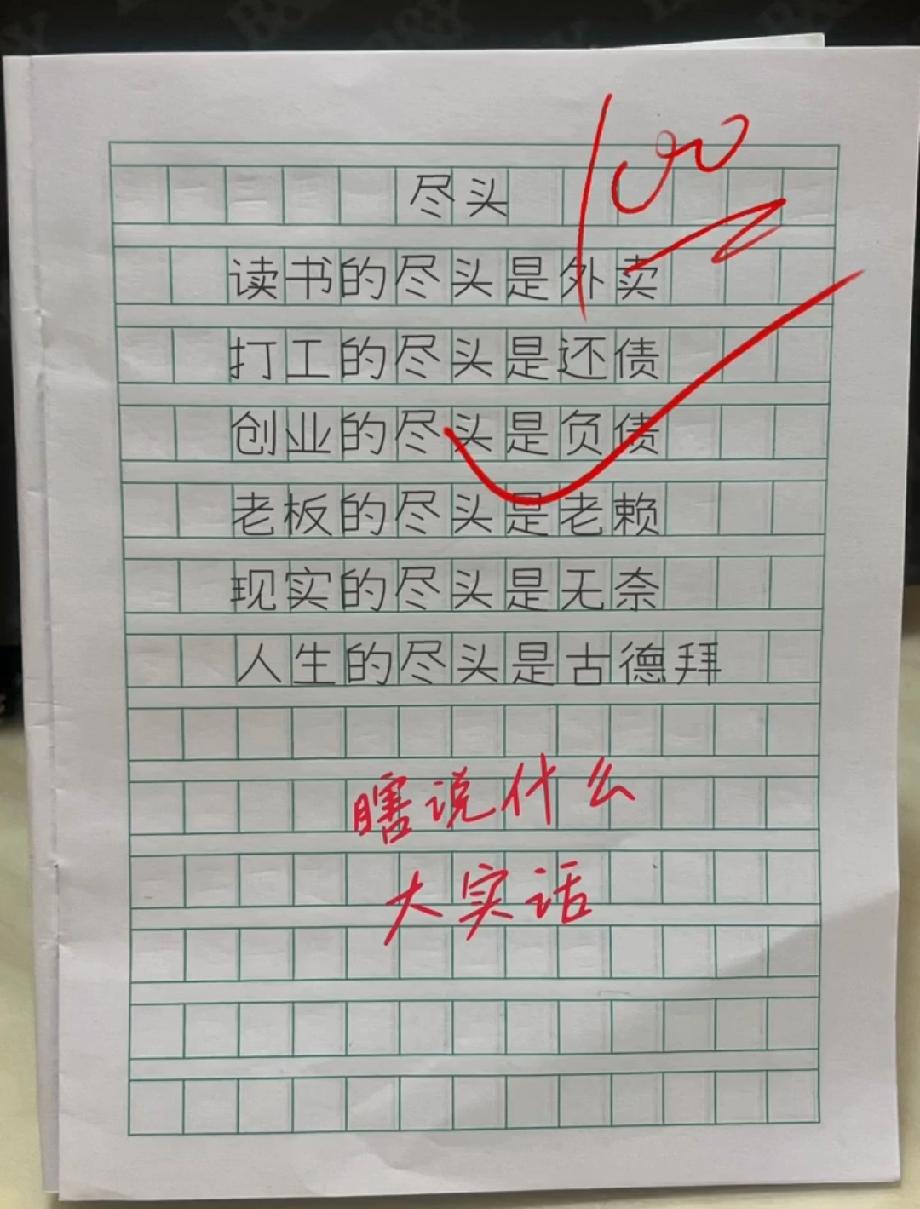 100
尽头
读书的尽头是外卖
打工的尽头是还债
创业的尽头是负债
老板的尽头是老赖
现实的尽头是无奈
人生的尽头是古德拜
瞎说什么
大实话